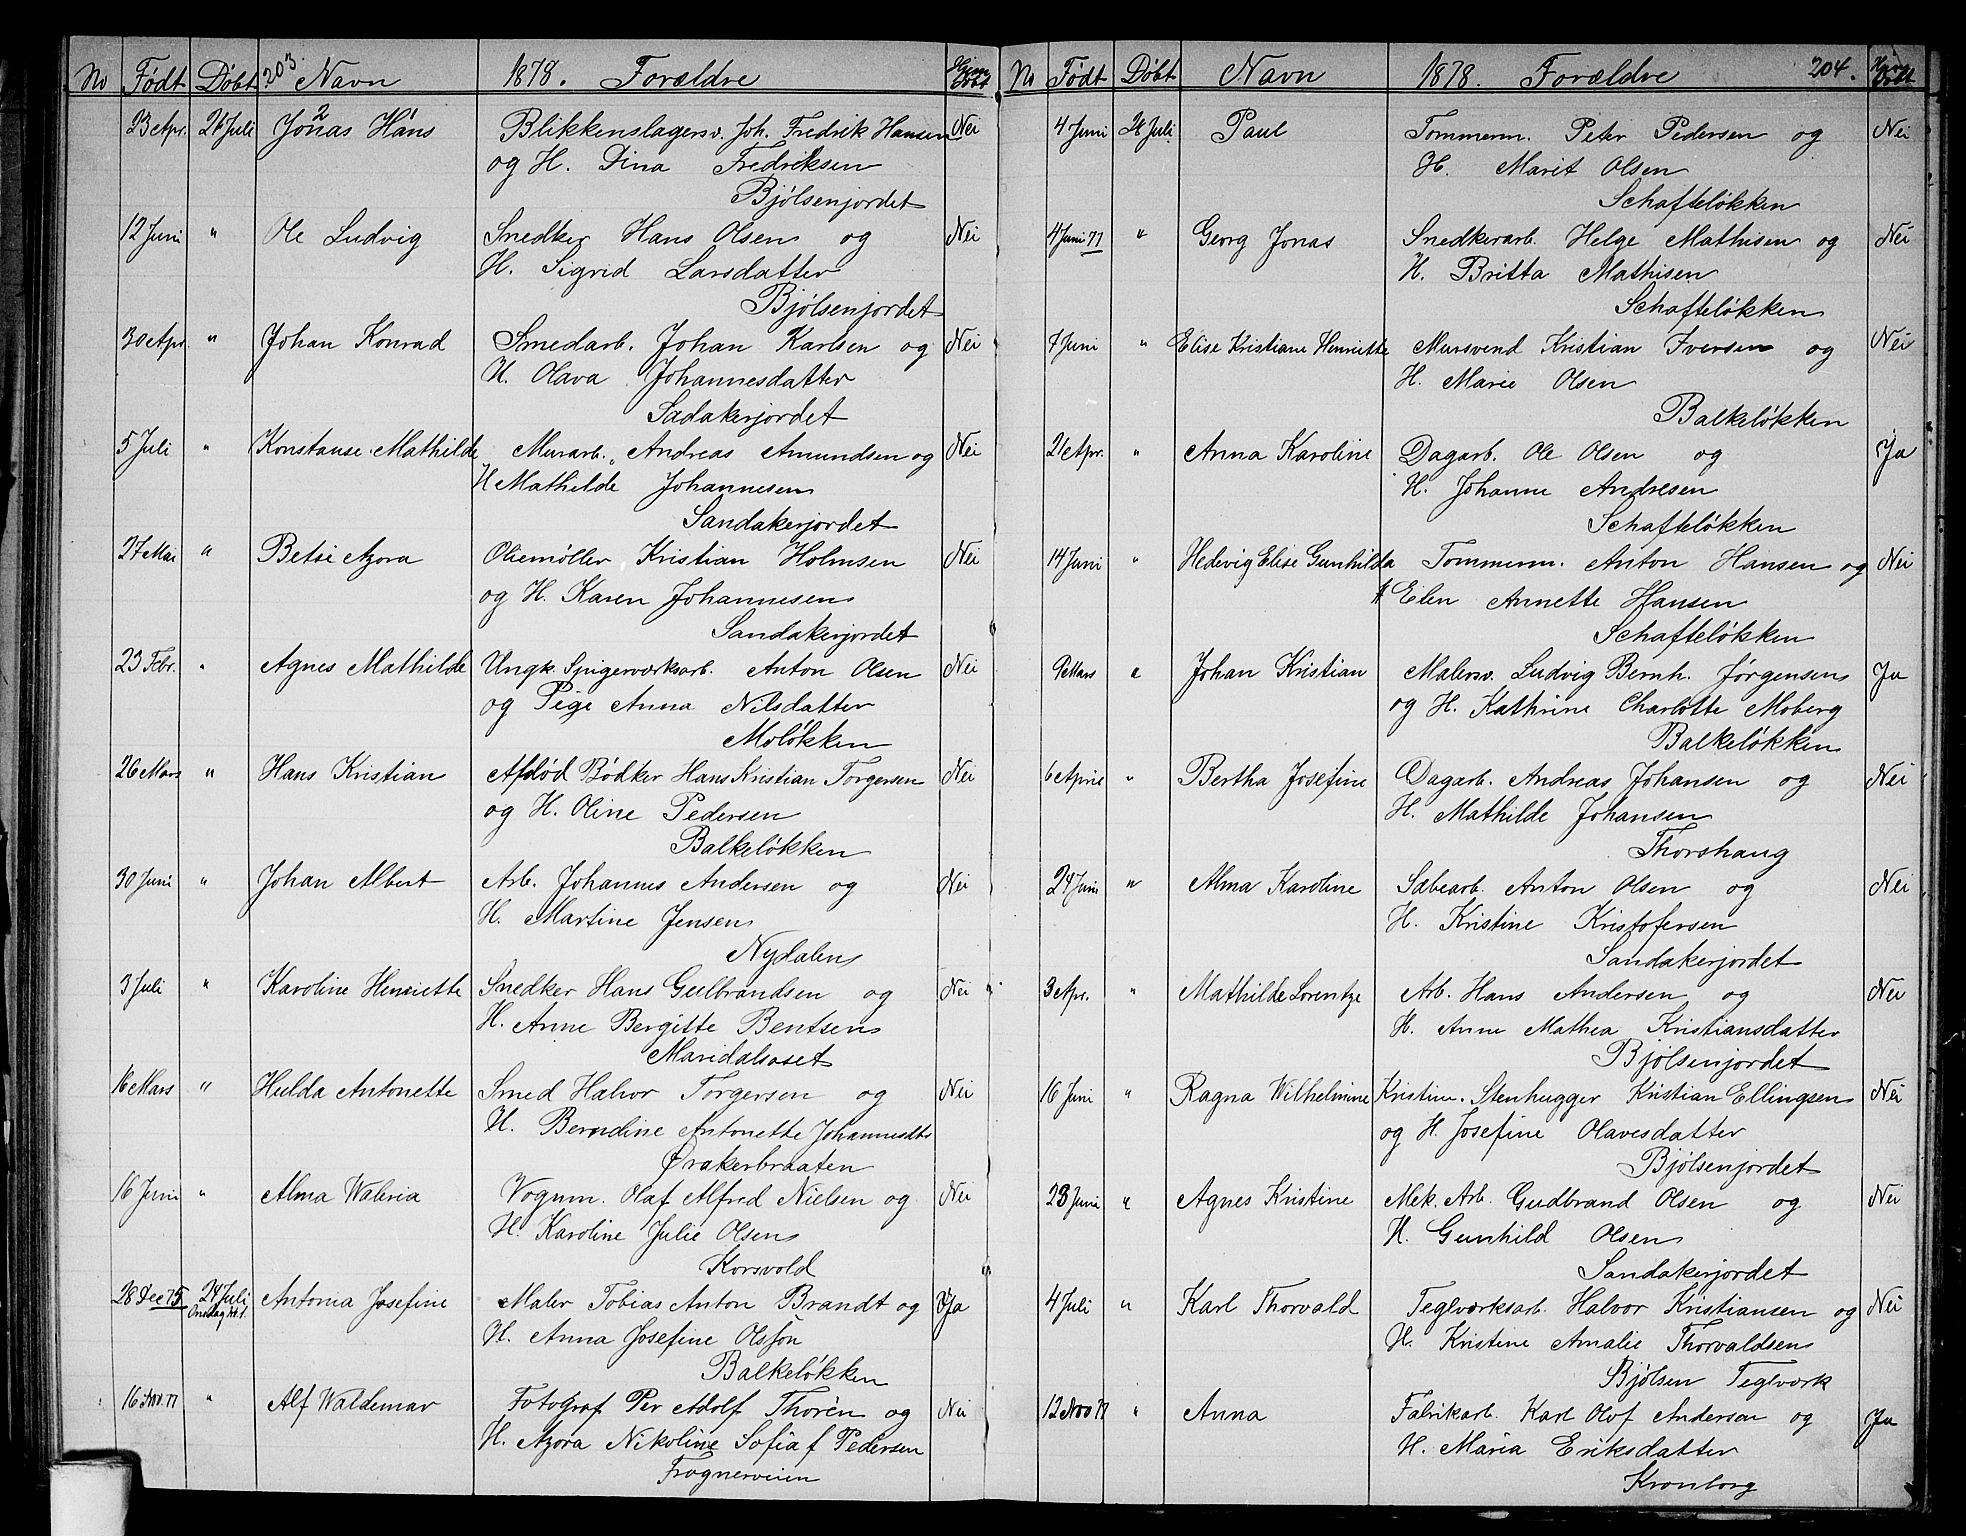 No Født Døbt 203. Navn 1878. Forældre
23 Apr. 21 Juli Jonas Hans 2 Blikkenslagersv. Joh. Fredrik Hansen Nei
og H. Dina Fredriksen
Bjølsenjordet
12 Juni " Ole Ludvig Snedker Hans Olsen og Nei
H. Sigrid Larsdatter
Bjølsenjordet
30 Apr " Johan Konrad Smedarb. Johan Karlsen og Nei
H. Olava Johannesdatter
Sadakerjordet
5 Juli " Konstanse Mathilde Murarb. Andreas Amundsen og Nei
H Mathilde Johannesen
Sandakerjordet
27 Mai " Betsi Azora Oliemøller Kristian Holmsen Nei
og H. Karen Johannesen
Sandakerjordet
23 Febr. " Agnes Mathilde Ungk. Spigerværksarb. Anton Olsen Nei
og Pige Anna Nilsdatter
Moløkken
26 Mars " Hans Kristian Afdød Bødker Hans Kristian Torgersen Nei
og H. Oline Pedersen
Balkeløkken
30 Juni " Johan Albert Arb. Johannes Andersen og Nei
H. Martine Jensen
Nydalen
3 Juli " Karoline Henriette Snedker Hans Gulbrandsen og Nei
H. Anne Bergitte Bentsen
Maridalsoset
16 Mars " Hulda Antonette Smed Halvor Torgersen og Nei
H. Berndine Antonette Johannesdtr
Ørakerbraaten
16 Juni " Alma Waleria Vognm. Olaf Alfred Nielsen og Nei
H. Karoline Julie Olsen
Korsvold
28 Dec 75 24 Juli Antonia Josefine Maler Tobias Anton Brandt og Ja
Onsdag
H. Anna Josefine Olsson
Balkeløkken
16 Nov. 77 " Alf Waldemar Fotograf Per Adolf Thorén og Nei
H. Azora Nikoline Sofia f Pedersen
Frognerveien
No Født Døbt Navn 1878. Forældre 204.
4 Juni 28 Juli Paul Tommerm. Peter Pedersen og Nei
H. Marit Olsen
Schafteløkken
4 Juni 77 " Georg Jonas Snedkerarb. Helge Mathisen og Nei
H. Britta Mathisen
Schafteløkken
7 Juni " Elise Kristiane Henriette Mursvend Kristian Iversen og Nei
H. Marie Olsen
Balkeløkken
21 Apr. " Anna Karoline Dagarb. Ole Olsen og Ja
H. Johanne Andresen
Schafteløkken
14 Juni " Hedevig Elise Gunhilda Tommerm. Anton Hansen og Nei
H Elen Annette Hansen
Schafteløkken
9 Mars " Johan Kristian Malersv. Ludvig Bernh. Jørgensen Ja
og H. Kathrine Charlotte Moberg
Balkeløkken
6 April " Bertha Josefine Dagarb. Andreas Johansen og Nei
H. Mathilde Johansen
Thorshaug
24 Juni " Alma Karoline Sæbearb. Anton Olsen og Nei
H. Kristine Kristofersen
Sandakerjordet
3 Apr. " Mathilde Lorentze Arb. Hans Andersen og Nei
H. Anne Mathea Kristiansdatter
Bjølsenjordet
16 Juni " Ragna Wilhelmine Kristine. Stenhugger Kristian Ellingsen Nei
og H. Josefine Olavesdatter
Bjølsenjordet
23 Juni " Agnes Kristine Mek. Arb. Gudbrand Olsen og Nei
H. Gunhild Olsen
Sandakerjordet
4 Juli " Karl Thorvald Teglværksarb. Halvor Kristiansen og Nei
H. Kristine Amalie Thorvaldsen
Bjølsen Teglværk
12 Nov 77 " Anna Fabrikarb. Karl Olof Anderson og Ja
H. Maria Eriksdatter
Kronborg